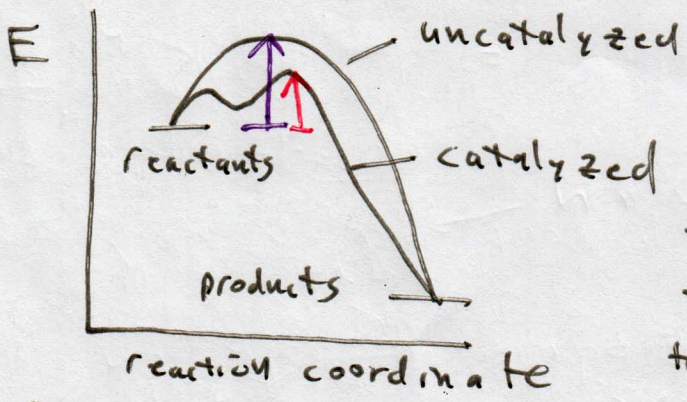 E
uncatalyzed
reactants
catalyzed
products
reaction coordinate